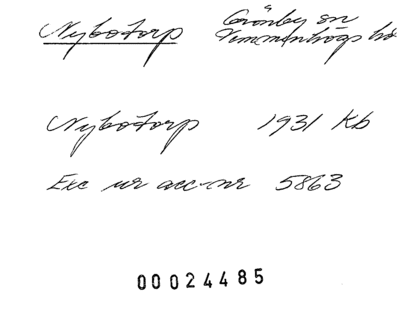 Nybotorp Grönby sn
Vemmenhögs hd
Nybotorp 1931 Kb
Exc ur acc-nr 5863
00024485